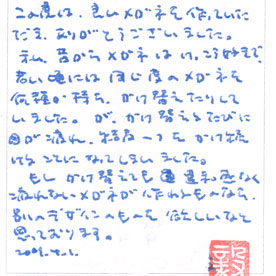 この度は、良いメガネを作っていた
だき、ありがとうございました。
私、昔からメガネはけっこう好きで、
若い頃には同じ度のメガネを
何種も持ち、かけ替えたりして
いました。が、かけ替えるたびに
目が疲れ、結局一つをかけ続
けることになってしまいました。
もしかけ替えても違和感なく
疲れないメガネが作れるものなら、
別のデザインのものも欲しいなと
思っております。